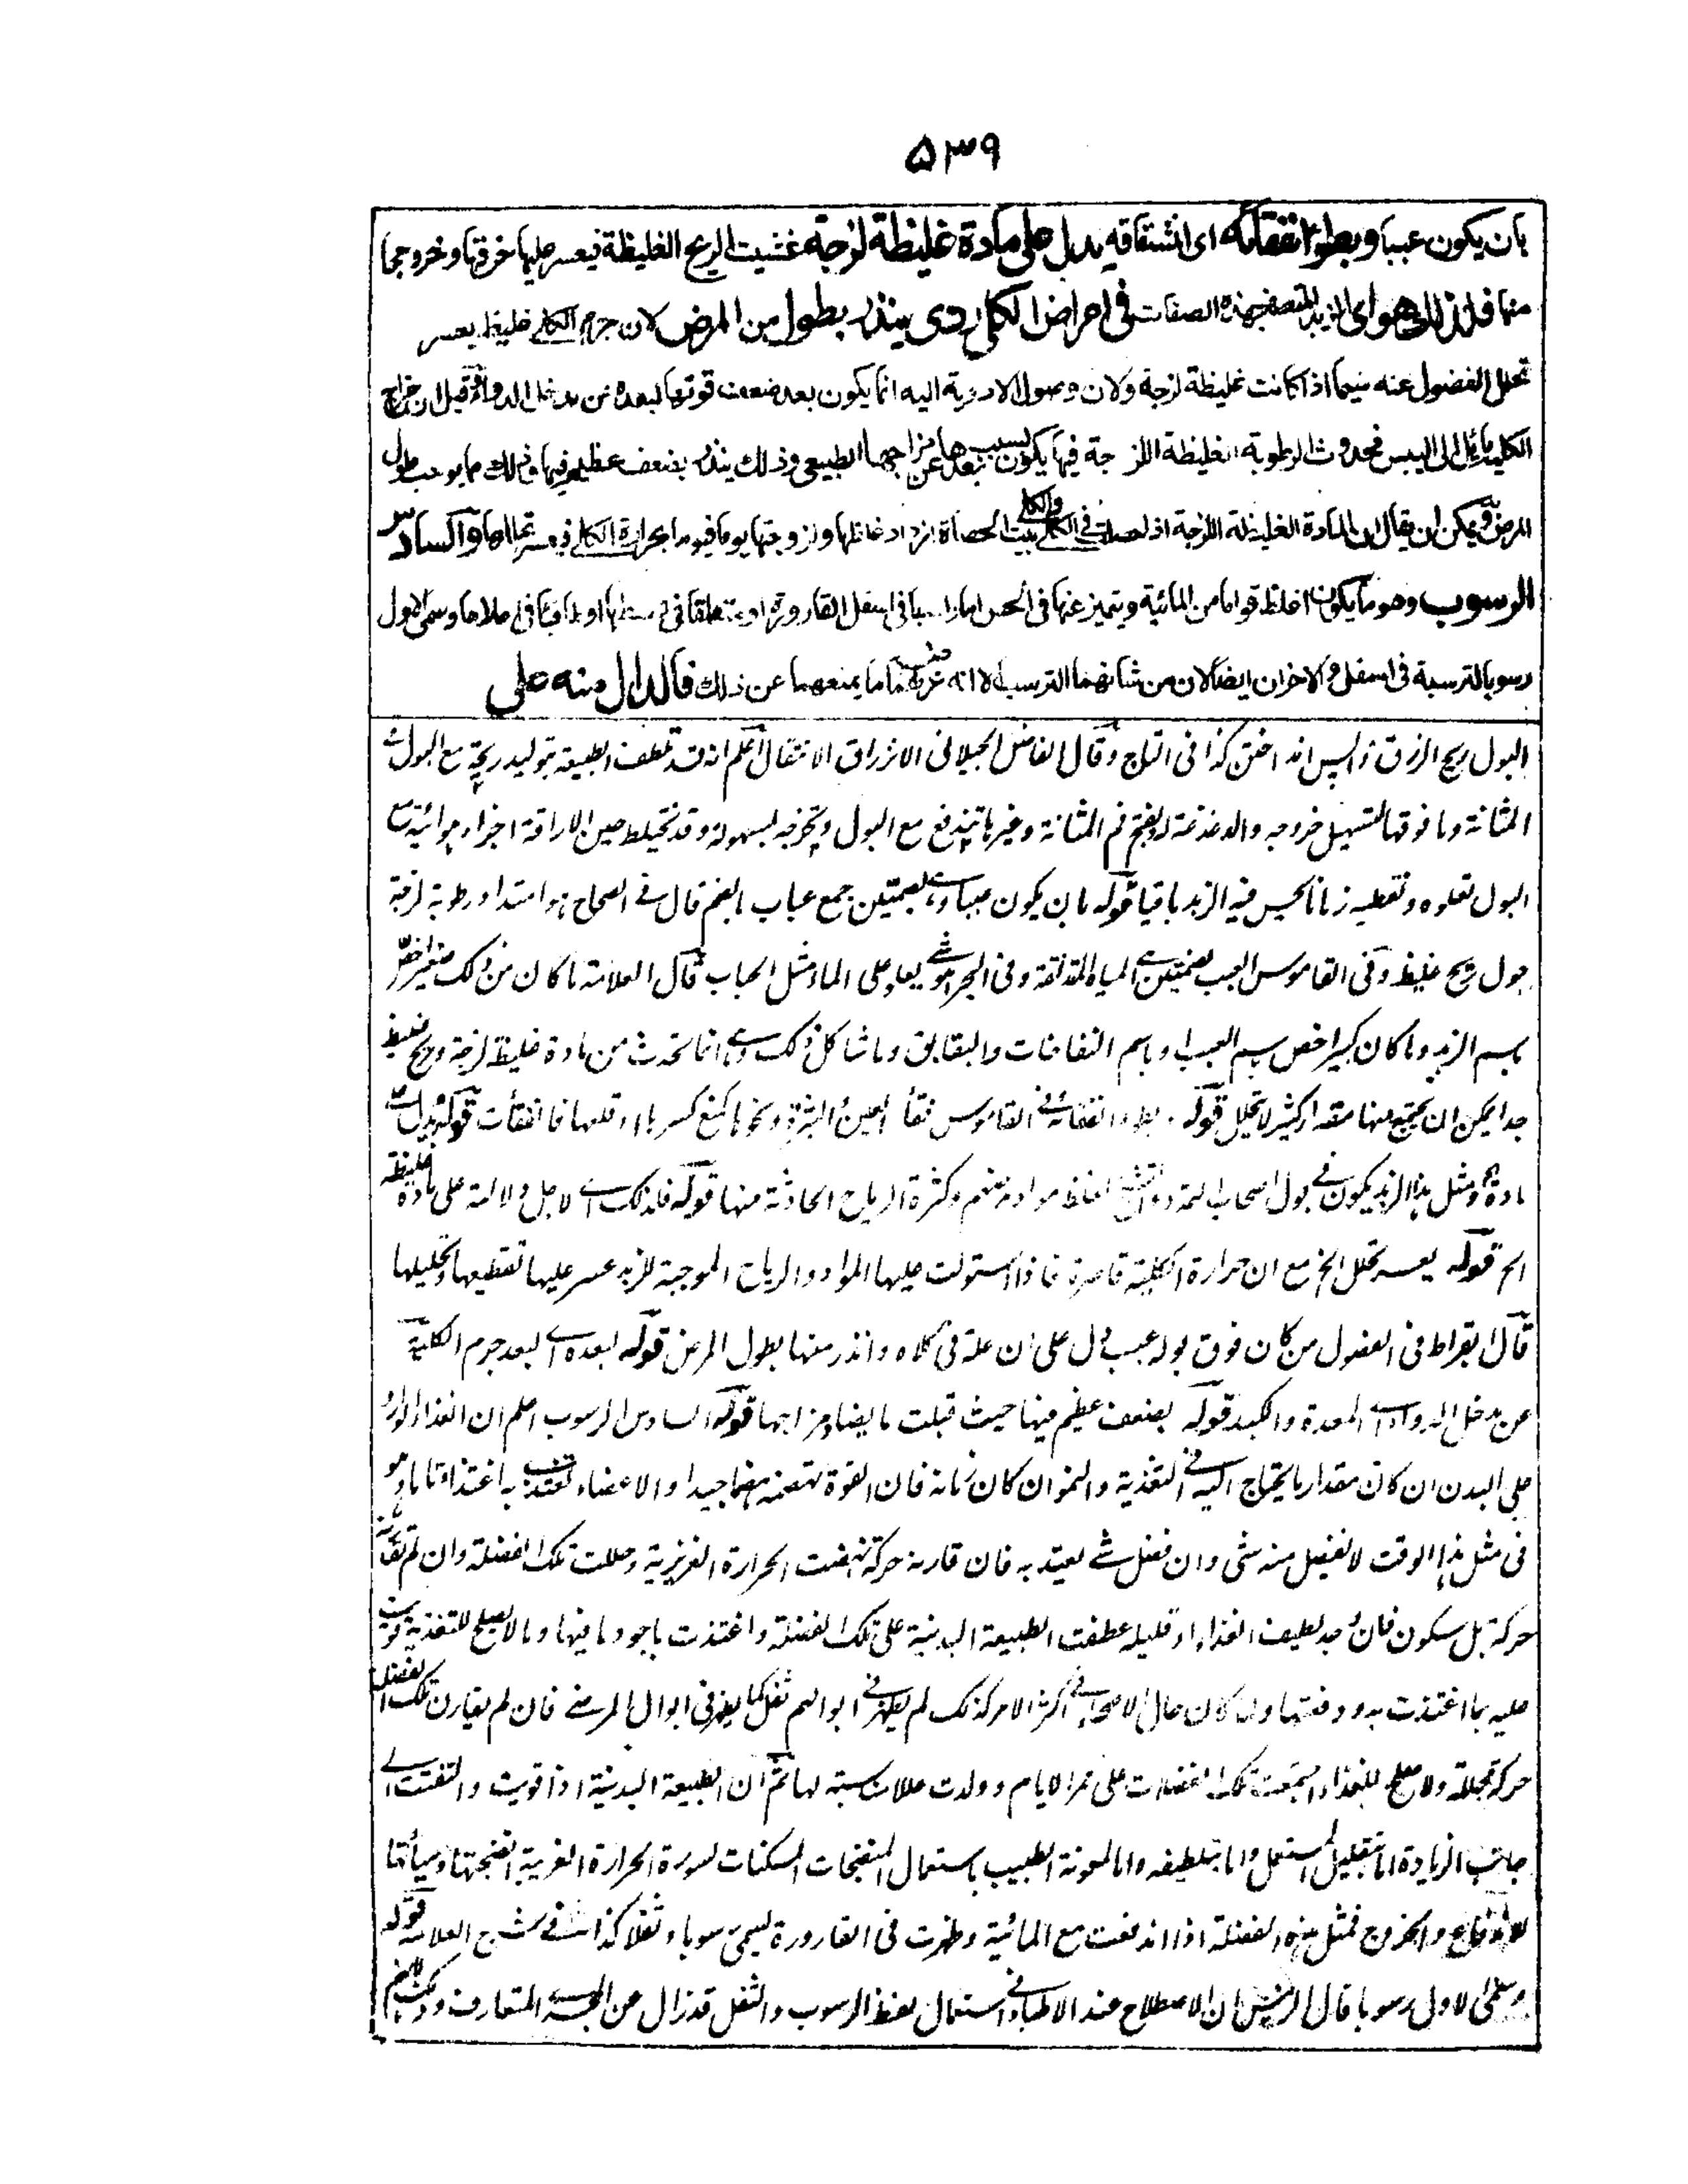 ۵۳۹
بان يكون عببا وبطوء انفقائه اى انشقاقه يدل على مادة غليظة لزجة غشيت الريح الغليظة فيعسر عليها خرقها وخروجها
منها فلذلك هو اى الزبد المتصف بهذه الصفات فى امراض الكلى ردى ينذر بطول من المرض لان جرم الكلى غليظ يعسر
تحلل الفضول عنه سيما اذا كانت غليظة لزجة ولان وصول الادوية اليه انما يكون بعد ضعف قوتها لبعده عن مدخل الدواء وقيل ان مزاج
الكلية مائل الى اليبس فحدوث الرطوبة الغليظة اللزجة فيها يكون بسبب بعدها عن مزاجها الطبيعى وذلك ينذر بضعف عظيم فيها وذلك مما يوجب طول
المرض ويمكن ان يقال ان المادة الغليظة اللزجة اذا حصلت فى الكلى والكلى بيت الحصاة ازداد غلظها ولزوجتها يوما فيوما بحرارة الكلى فيعسر تحللها والسادس
الرسوب وهو ما يكون اغلظ قواما من المائية ويتميز عنها فى الحس اما راسبا فى اسفل القارورة او متعلقا فى وسطها او طافيا فى اعلاها وسمى الاول
رسوبا لترسبه فى اسفل والاخران ايضا لان من شانهما الترسب الا انه عرض لهما ما يمنعهما عن ذلك فالدال منه على
البول ريح الزرق اختن كذا فى التاج وقال الفاضل الجيلانى الانزراق الانتقال اعلم انه قد تلطف الطبيعة بتوليد ريحية مع البول فى
المثانة وما فوقها لتسهيل خروجه والدغدغة لفتح فم المثانة وغيرها يندفع مع البول ويخرجه بسهولة وقد تختلط حين الاراقة اجزاء هوائية مع
البول تعلوه وتغطيه زمانا يحس فيه الزبد باقيا قوله بان يكون عببا اى بضمتين جمع عباب بالضم قال فى الصحاح هو امتداد رطوبة لزجة
حول ريح غليظ وفى القاموس العبب بضمتين المياه المتدفقة وفى البحر هو شىء يعلو على الماء مثل الحباب قال العلامة ما كان من ذلك صغيرا خص
باسم الزبد وما كان كبيرا خص باسم العبب او باسم النفاخات والبقابق وما شاكل ذلك وهى انما تحدث من مادة غليظة لزجة وريح غليظ
جدا يمكن ان يجتمع منها مقدار كثير لا يتحلل قوله وبطوء انفقائه فى القاموس فقأ العين والبثرة ونحوها كمنع كسرها او قلعها فانفقأت قوله يدل على
مادة ومثل هذا الزبد يكون فى بول اصحاب لغلظ موادهم وكثرة الرياح الحادثة منها قوله فلذلك اى لاجل دلالته على مادة غليظة
الخ قوله يعسر تحلل الخ مع ان حرارة الكلية قاصرة فاذا استولت عليها المواد والرياح الموجبة للزبد عسر عليها تقطيعها وتحليلها
قال بقراط فى الفصول من كان فوق بوله عبب دل على ان علة فى كلاه وانذر منها بطول المرض قوله لبعده اى لبعد جرم الكلية
عن مدخل الدواء اى المعدة والكبد قوله بضعف عظيم فيها حيث قبلت ما يضاد مزاجها قوله السادس الرسوب اعلم ان الغذاء الوارد
على البدن ان كان مقدار ما يحتاج اليه فى التغذية والنمو ان كان زمانه فان القوة تهضمه هضما جيدا والاعضاء تغتذى به اغتذاء تاما وهو
فى مثل هذا الوقت لا يفضل منه شىء وان فضل شىء يعتد به فان قارنه حركة نهضت الحرارة الغريزية وحللت تلك الفضلة وان لم تقارنه
حركة بل سكون فان وجد لطيف الغذاء او قليله عطفت الطبيعة البدنية على تلك الفضلة واغتذت باجود ما فيها وما لا يصلح للتغذية قويت
عليه بما اغتذت به ودفعتها ولما كان حال الاصحاء فى اكثر الامر كذلك لم يظهر فى ابوالهم ثفل كما يظهر فى ابوال المرضى فان لم يقارن تلك الفضلة
حركة محللة ولا صلح للغذاء اجتمعت تلك الفضلات على ممر الايام وولدت عللا مناسبة لها ثم ان الطبيعة البدنية اذا قويت والتفتت الى
جانب الزيادة اما بتقليل المستعمل واما بتلطيفه واما لمعونة الطبيب باستعمال المنضجات المسكنات لسورة الحرارة الغريبة انضجتها وهيأتها
للاندفاع والخروج فمثل هذه الفضلة اذا اندفعت مع المائية وظهرت فى القارورة يسمى رسوبا وثفلا كذا فى شرح العلامة قوله
وسمى الاول رسوبا قال الرئيس ان الاصطلاح عند الاطباء فى استعمال لفظ الرسوب والثفل قد زال عن المجرى المتعارف وذلك لانهم